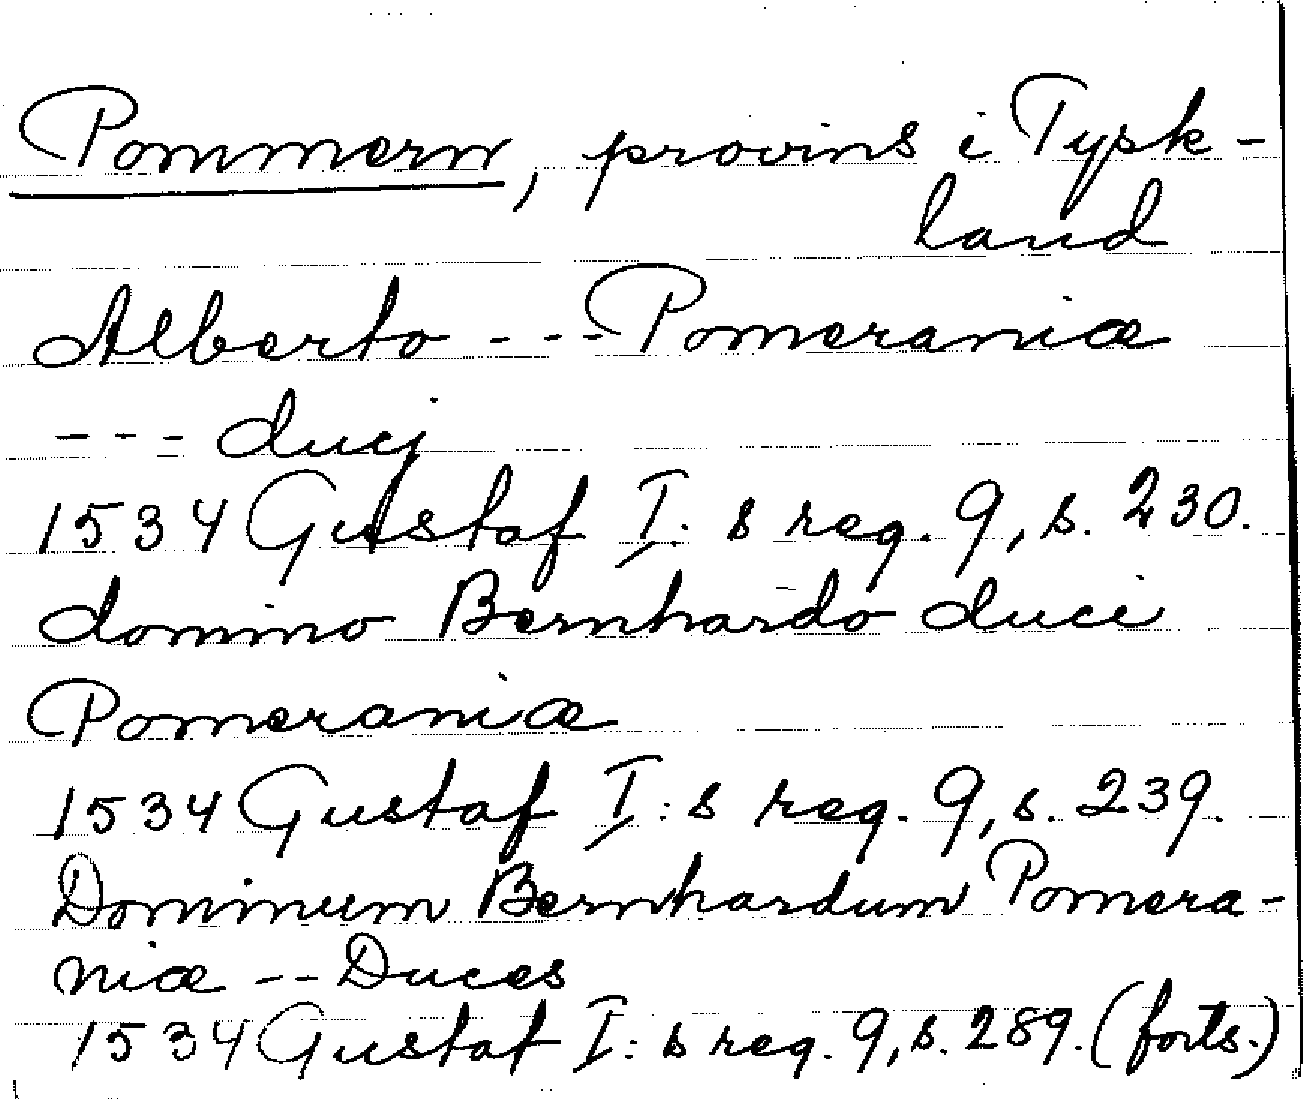 Pommern, provins i Tysk-
land
Alberto --- Pomeraniæ
--- ducj
1534 Gustaf I:s reg. 9, s. 230.
domino Bernhardo duci
Pomeraniæ
1534 Gustaf I:s reg. 9, s. 239.
Dominum Bernhardum Pomera-
niæ -- Duces
1534 Gustaf I:s reg. 9, s. 289. (forts.)